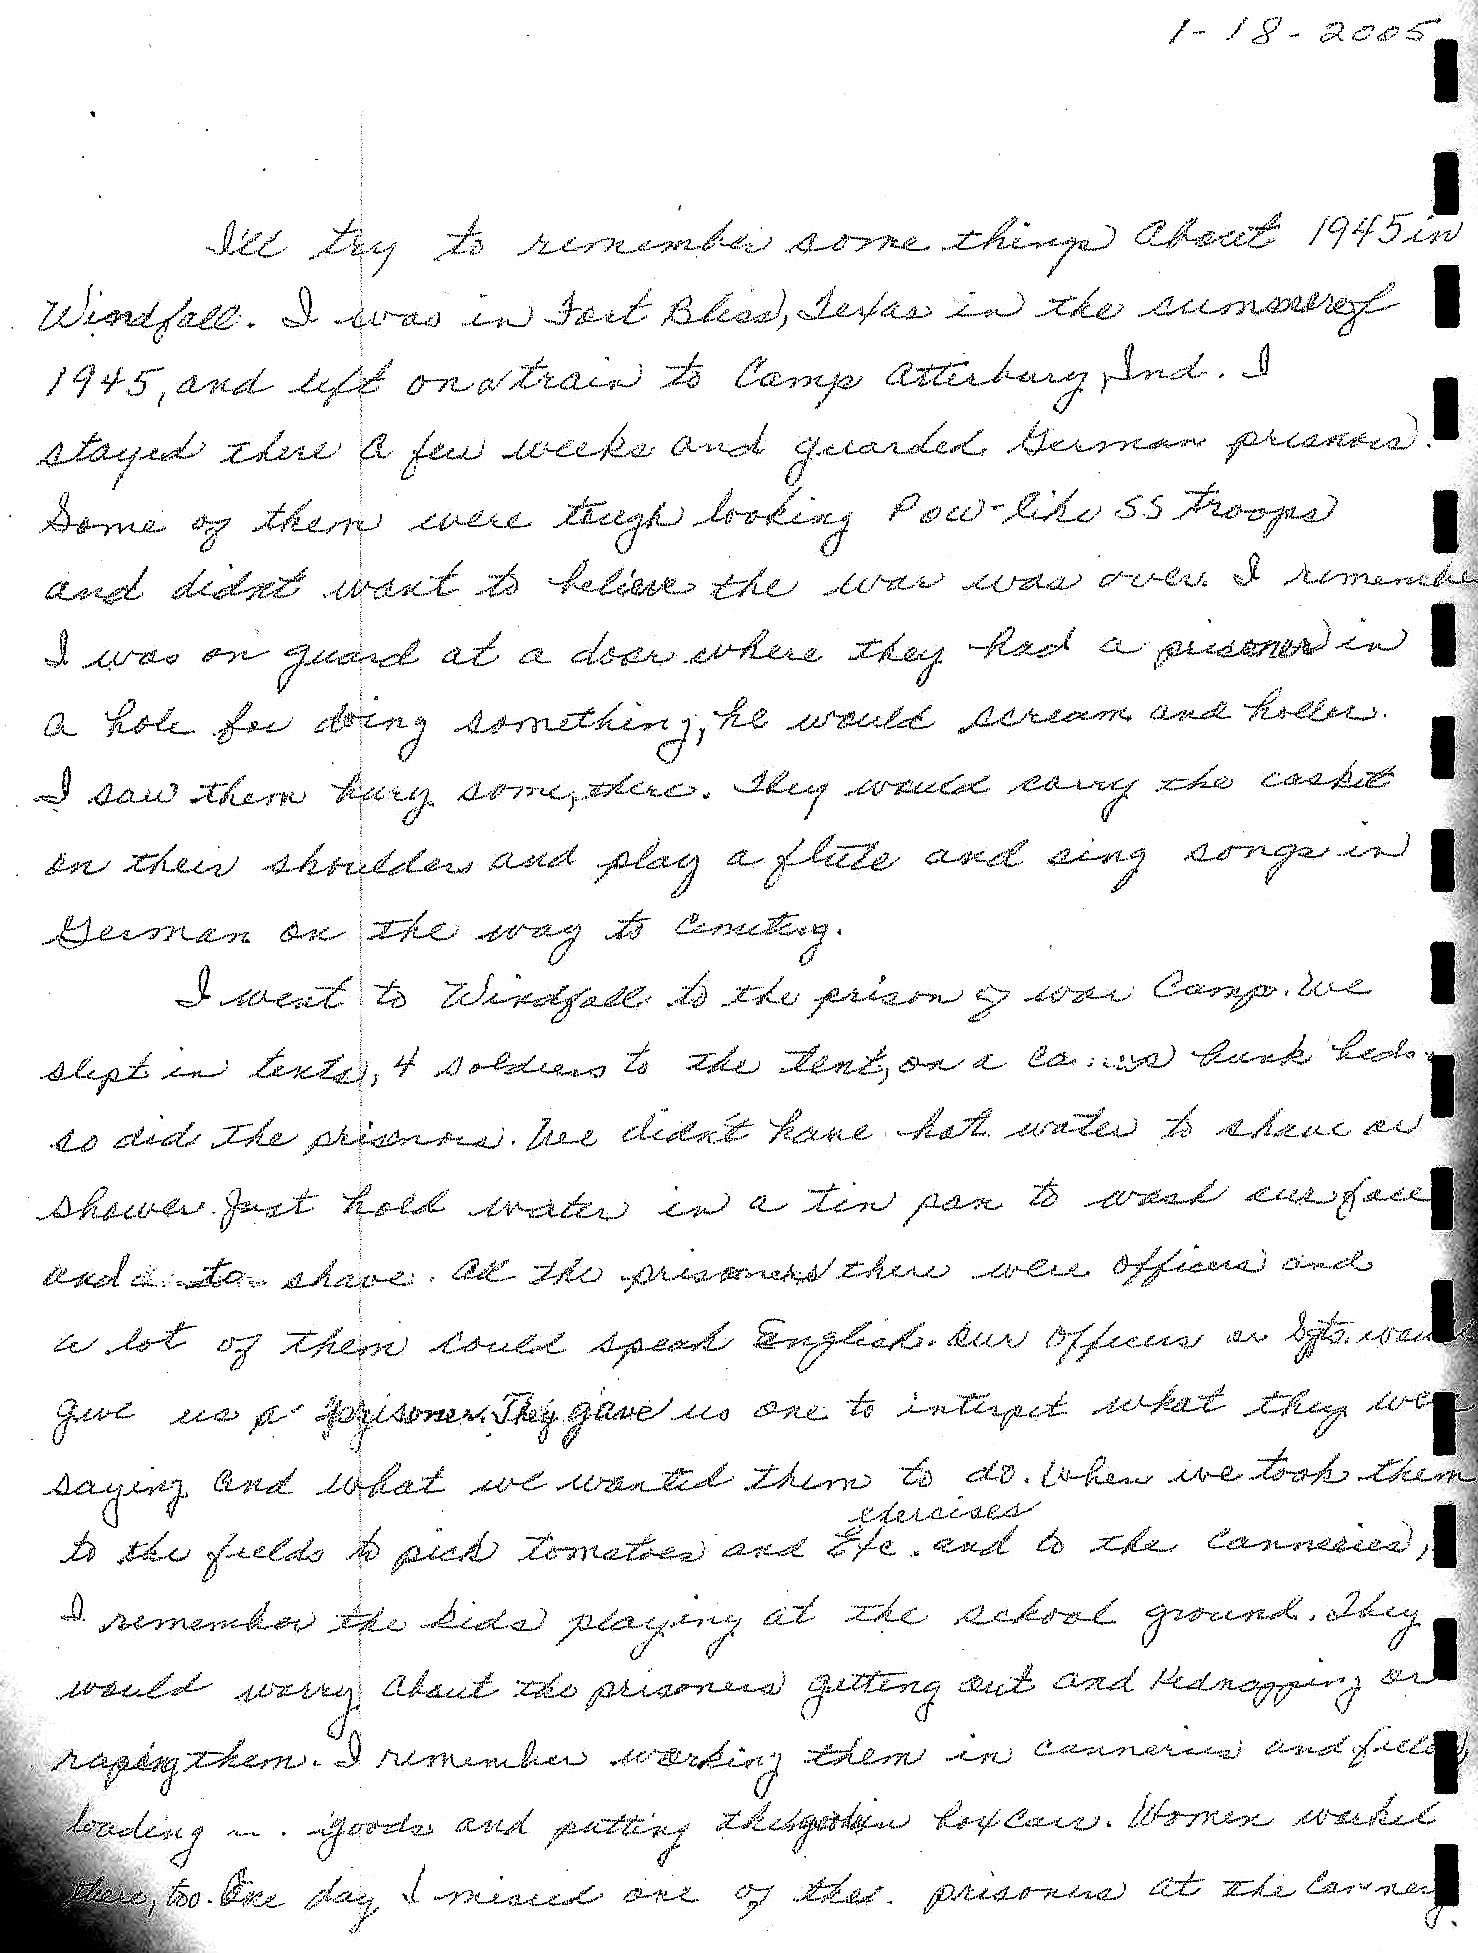 1-18-2005
I'll try to remember some things About 1945 in
Windfall. I was in Fort Bliss, Texas in the summer of
1945, and left on a train to Camp Atterbury, Ind. I
stayed there a few weeks and guarded German prisnors.
Some of them were tough looking Pow-like SS Troops
and didn't want to believe the war was over. I remember
I was on guard at a door where they had a prisoner in
a hole for doing something, he would scream and holler.
I saw them bury some, there. They would carry the casket
on their shoulders and play a flute and sing songs in
German on the way to cemetery.
I went to Windfall to the prison of war Camp. We
slept in tents, 4 soldiers to the tent, on a bunk beds-
so did the prisnors. We didn't have hot water to shave or
shower. Just hold water in a tin pan to wash our face
and to shave. All the prisoners there were officers and
a lot of them could speak English. Our officers or Sgts. would
give us a prisoner. They gave us one to interpet what they were
saying and what we wanted them to do. When we took them
exercises
to the fields to pick tomatoes and Exc. and to the canneries,
I remember the kids playing at the school ground. They
would worry about the prisoners getting out and kidnapping or
raping them. I remember working them in canneries and fields,
loading goods and putting the goods in boxcars. Women worked
there, too. One day I missed one of the prisoners at the Cannery.